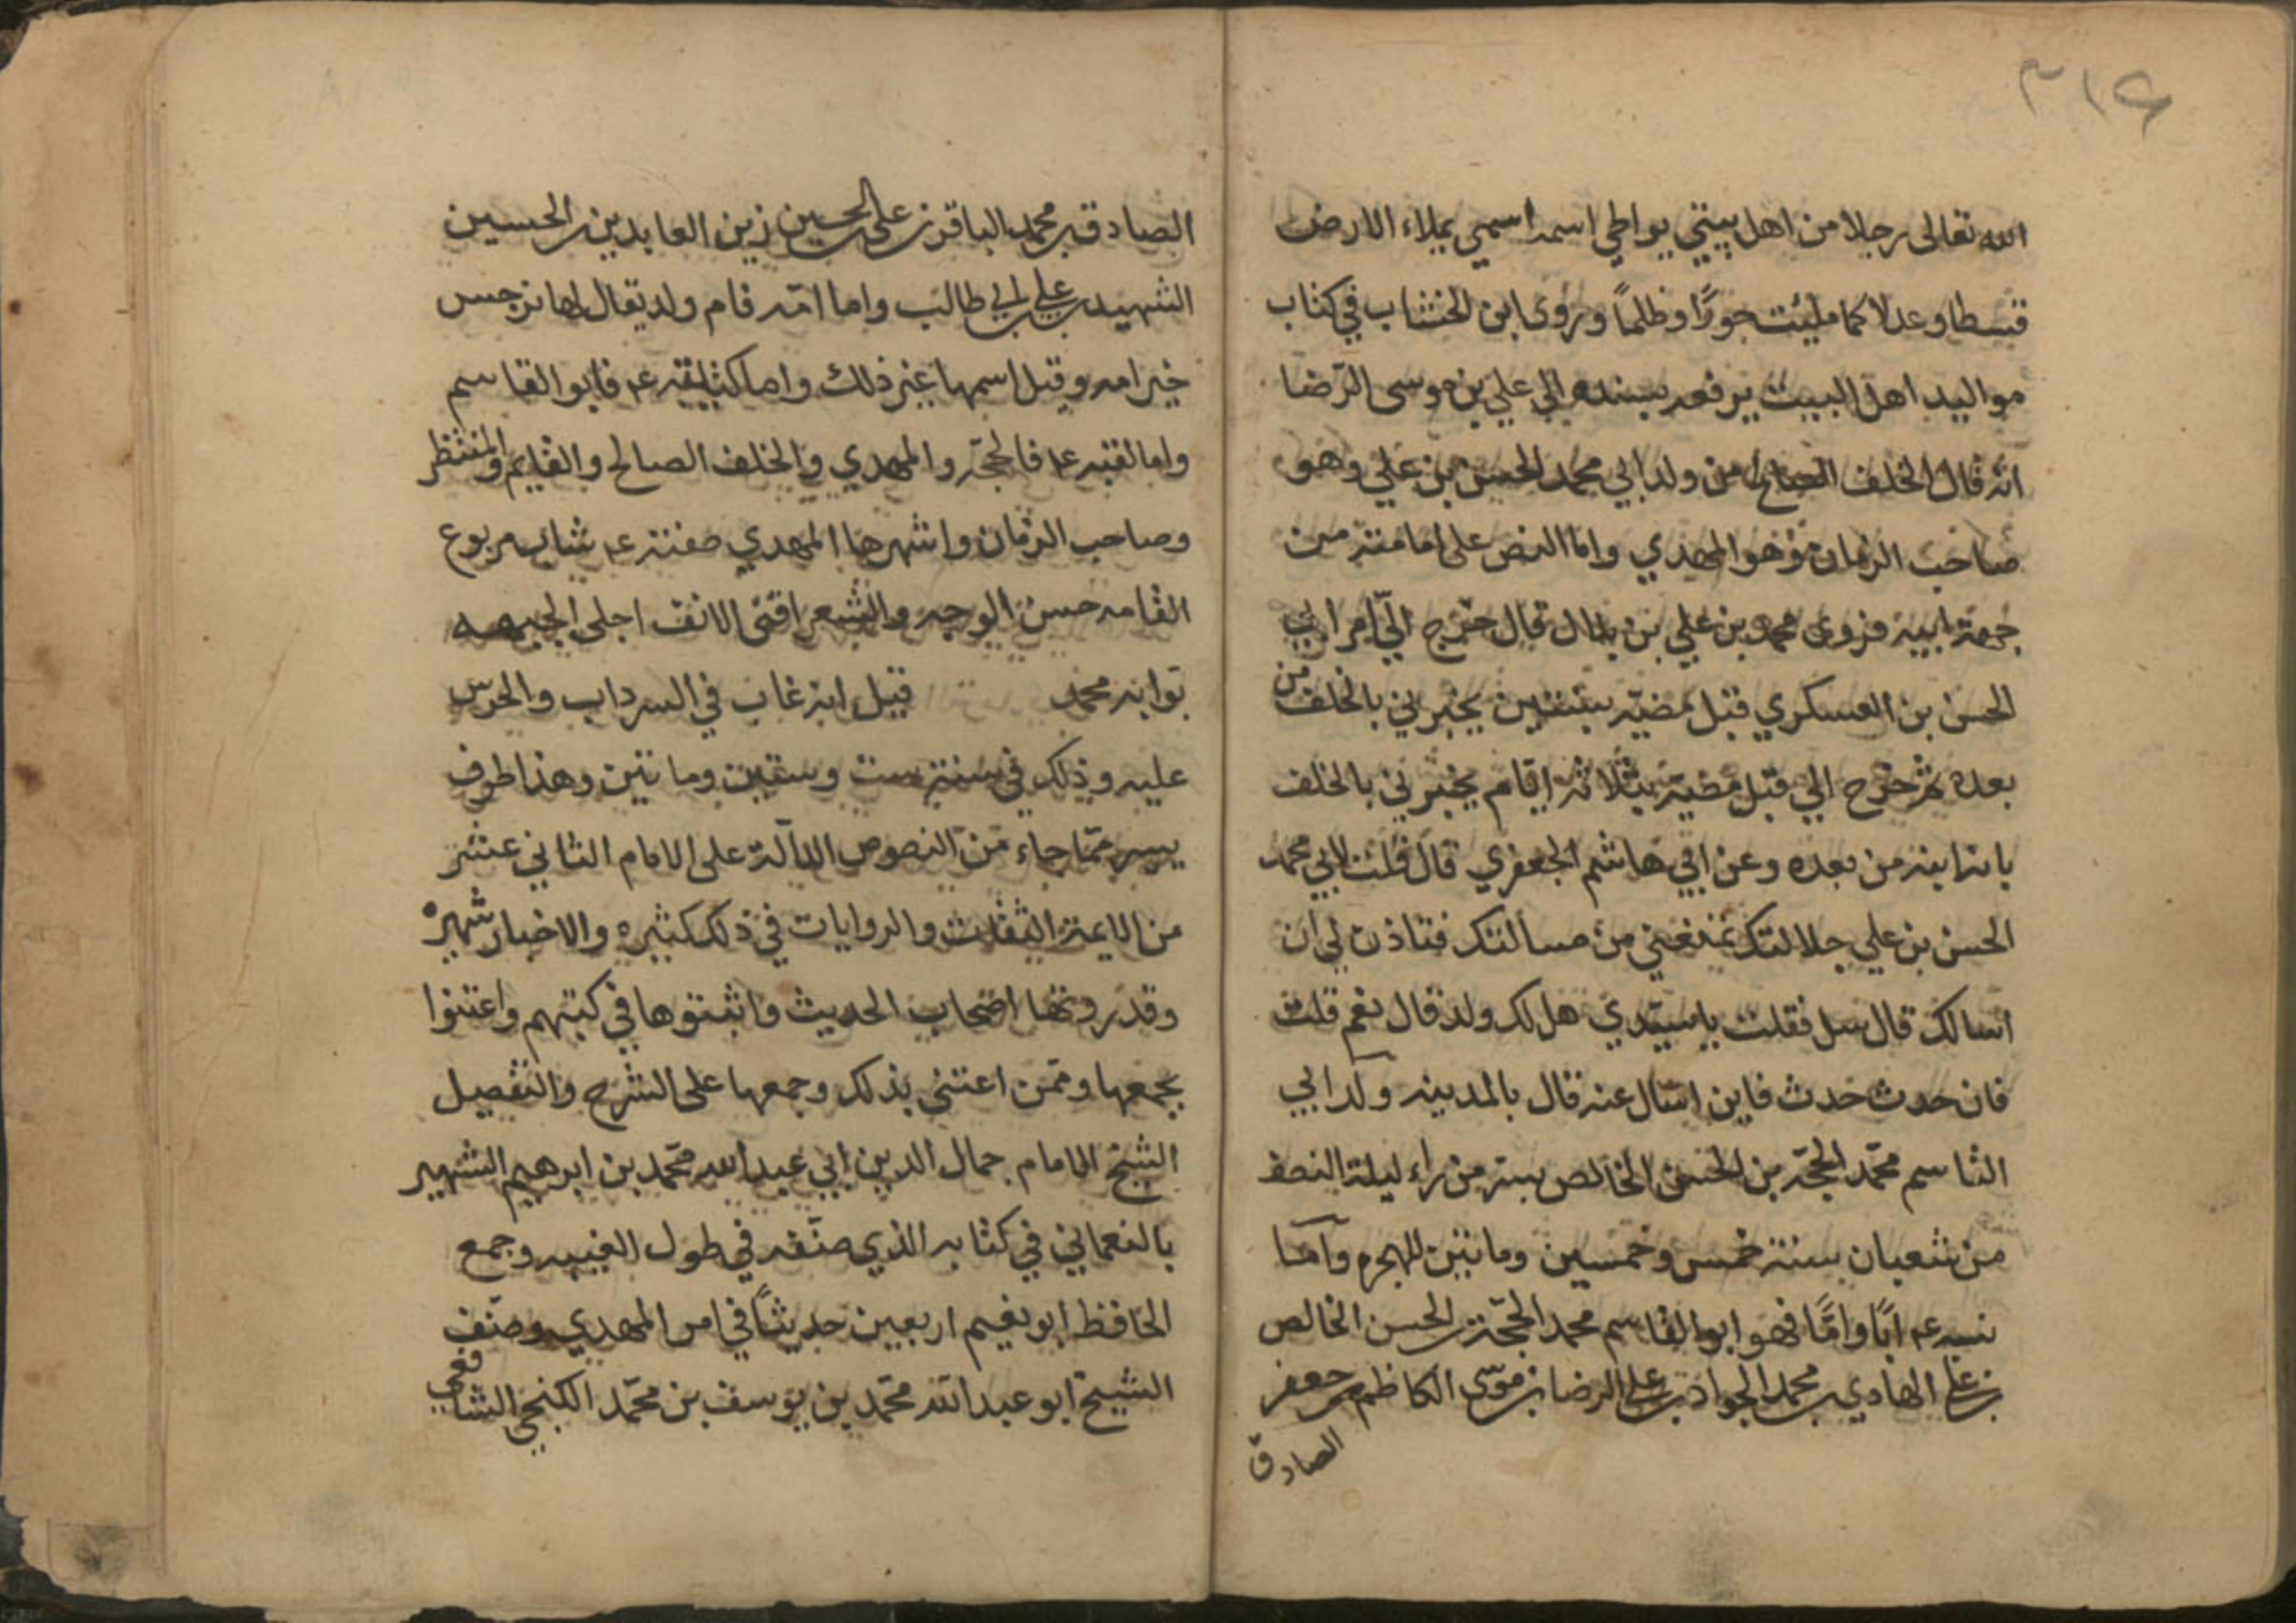 ٣١٤
الله تعالى رجلا من اهل بيتي يواطي اسمه اسمي يملاء الارض
قسطا وعدلا كما ملئت جورًا وظلمًا وروى ابن الخشاب في كتاب
مواليد اهل البيت يرفعه بسنده الى علي بن موسى الرّضا
انه قال الخلف الصالح من ولد ابي محمد الحسن بن علي وهو
صاحب الزمان وهو المهدي واما النص على امامته من
جهة ابيه فروى محمد بن علي بن بلال قال خرج اليّ امر ابي
الحسن بن العسكري قبل مضيّه بسنتين يخبرني بالخلف من
بعده ثم خرج الي قبل مضيّه بثلاثة ايام يخبرني بالخلف
بانه ابنه من بعده وعن ابي هاشم الجعفري قال قلت لابي محمد
الحسن بن علي جلالتك تمنعني من مسالتك فتاذن لي ان
اسالك قال سل فقلت يا سيّدي هل لك ولد قال نعم قلت
فان حدث حدث فاين اسال عنه قال بالمدينه ولد ابي
القاسم محمّد الحجّة بن الحسن الخالص بسر من راء ليلة النصف
من شعبان سنة خمس وخمسين وماتين للهجره وآما
نسبه عه ابًا وامًّا فهو ابو القاسم محمد الحجّة بن الحسن الخالص
بن علي الهادي بن محمد الجواد بن علي الرضا بن موسى الكاظم بن جعفر
الصادق
الصادق بن محمد الباقر بن علي الحسين زين العابدين بن الحسين
الشهيد بن علي بن ابي طالب واما امّه فام ولد يقال لها نرجس
خير امه وقيل اسمها غير ذلك واما كنيته عه فابو القاسم
واما لقبه عه فالحجّه والمهدي والخلف الصالح والقايم والمنتظر
وصاحب الزمان واشهرها المهدي صفته عه شاب مربوع
القامه حسن الوجه والشعر اقنى الانف اجلى الجبهه
بوابه محمد قيل انه غاب في السرداب والحرس
عليه وذلك في سنة ست وستين وماتين وهذا طرف
يسير ممّا جاء من النصوص الدآلة على الامام الثاني عشر
من الايمة الثقات والروايات في ذلك كثيره والاخبار شهيره
وقد رونها اصحاب الحديث واثبتوها في كتبهم واعتنوا
بجمعها وممّن اعتنى بذلك وجمعها على الشرح والتفصيل
الشيخ الامام جمال الدين ابي عبد الله محمّد بن ابرهيم الشهير
بالنعماني في كتابه الذي صنّفه في طول الغيبه وجمع
الحافظ ابو نعيم اربعين حديثًا في امر المهدي وصنّف
الشيخ ابو عبد الله محمّد بن يوسف بن محمّد الكنجي الشافعي